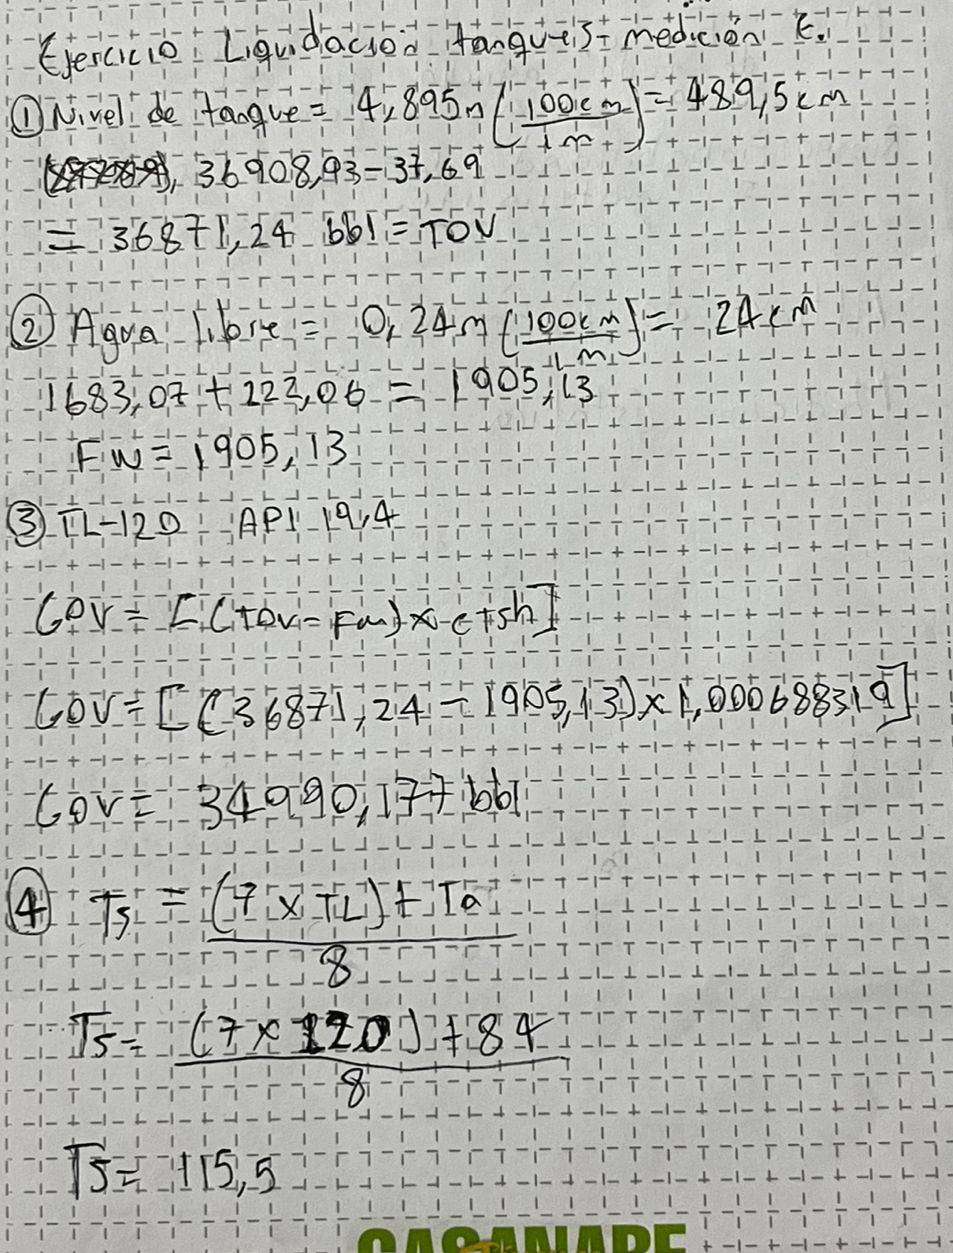 Ejercicio Liquidación tanques - medición E.
① Nivel de tanque = 4,895m (100cm / 1m) = 489,5cm
36908,93 - 37,69
= 36871,24 bbl = TOV
② Agua libre = 0,24m (100cm / 1m) = 24cm
1683,07 + 222,06 = 1905,13
FW = 1905,13
③ TL-120 API 19,4
GOV = [(TOV - FW) x CTSh]
GOV = [(36871,24 - 1905,13) x 1,000688319]
GOV = 34990,177 bbl
④ Ts = (7 x TL) + Ta
8
Ts = (7 x 120) + 84
8
Ts = 115,5
CASANARE